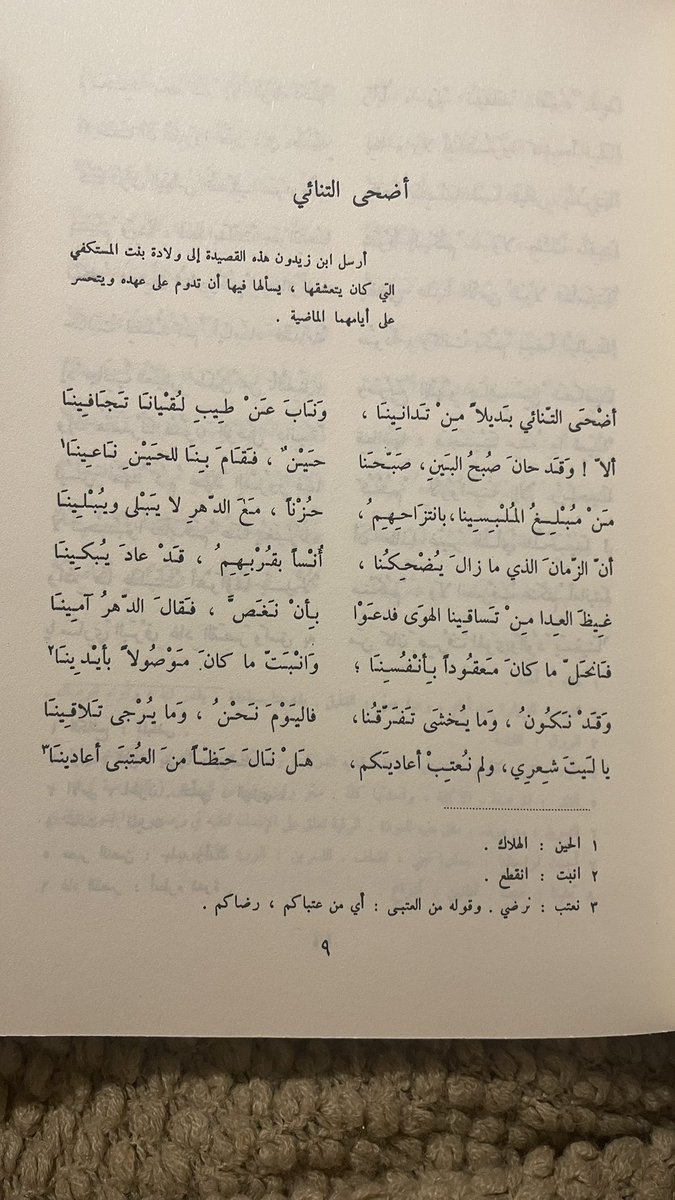 أضحى التنائي
أرسل ابن زيدون هذه القصيدة إلى ولادة بنت المستكفي
التي كان يتعشقها ، يسألها فيها أن تدوم على عهده ويتحسر
على أيامهما الماضية .
أضْحَى التّنائي بَديلاً مِنْ تَدانِينَا ، وَنَابَ عَنْ طِيبِ لُقْيانَا تَجَافِينَا
ألاّ ! وَقَد حانَ صُبحُ البَينِ ، صَبّحَنا حَيْنٌ ، فَقَامَ بِنَا للحَيْنِ نَاعِينَا١
مَنْ مُبْلِغُ المُلْبِسِينا، بانتزَاحِهِمُ ، حُزْناً ، مَعَ الدّهرِ لا يَبْلى ويُبْلِينَا
أنّ الزّمانَ الذي ما زالَ يُضْحِكُنا ، أُنْساً بقُرْبِهِمُ ، قَدْ عادَ يُبكِينَا
غِيظَ العِدا مِنْ تَساقِينا الهوَى فدعَوْا بِأنْ نَغَصَّ ، فَقالَ الدّهرُ آمِينَا
فَانحَلّ ما كانَ مَعقُوداً بِأنْفُسِنَا ؛ وَانْبَتّ ما كانَ مَوْصُولاً بأيْدِينَا٢
وَقَدْ نَكُونُ ، وَما يُخشَى تَفَرّقُنا، فاليَوْمَ نَحْنُ ، وَما يُرْجى تَلاقِينَا
يا لَيتَ شِعرِي، ولم نُعتِبْ أعاديَكم، هَلْ نَالَ حَظّاً منَ العُتبَى أعادينَا٣
١ الحين : الهلاك .
٢ انبت : انقطع .
٣ نعتب : نرضي . وقوله من العتبى : أي من عتباكم ، رضاكم .
٩